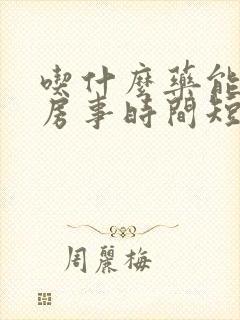 喫什麼藥能
房事時間短
周麗梅